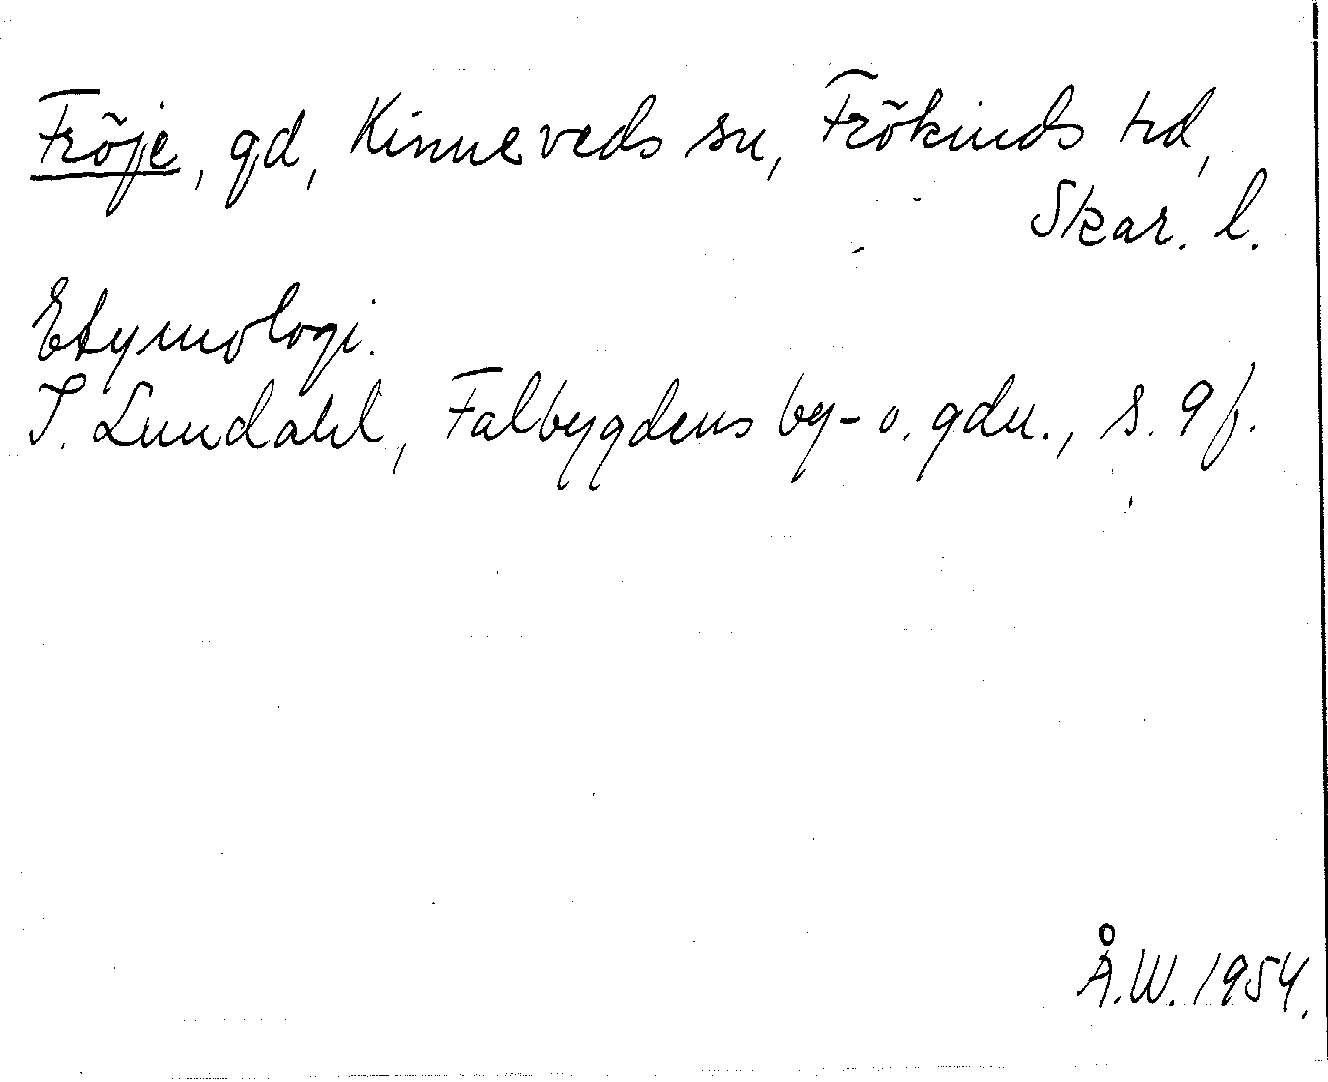 Fröje, gd, Kinneveds sn, Frökinds hd,
Skar. l.
Etymologi.
I. Lundahl, Falbygdens by- o. gdn., s. 9 f.
Å.W. 1954.